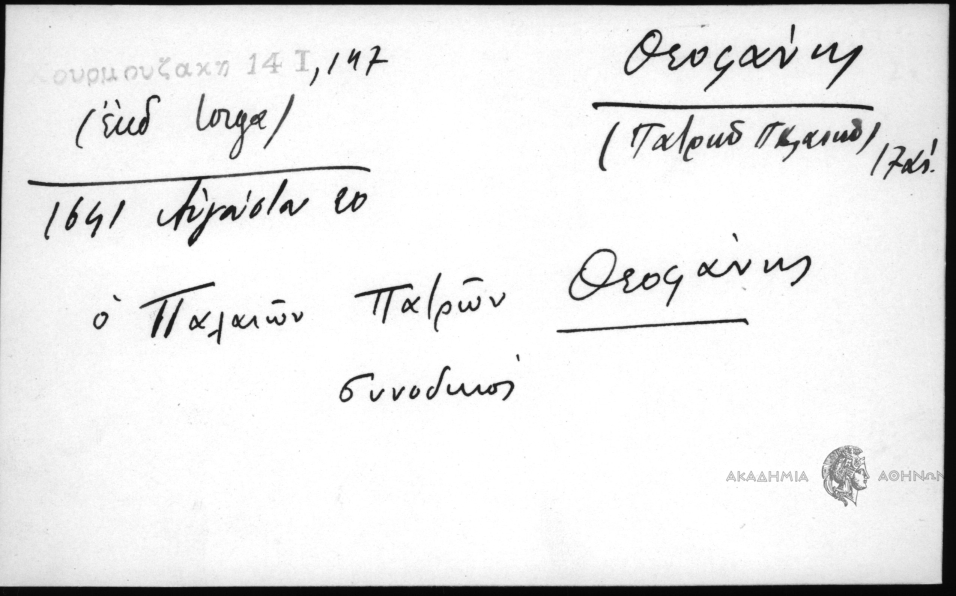 ουρμουζακη 14 I, 147
(ἔκδ Iorga)
1641 Αὐγούστου 20
Θεοφάνης
(Πατρῶν Παλαιῶν) 17 αἰ.
ὁ Παλαιῶν Πατρῶν Θεοφάνης
συνοδικός
ΑΚΑΔΗΜΙΑ ΑΘΗΝΩΝ